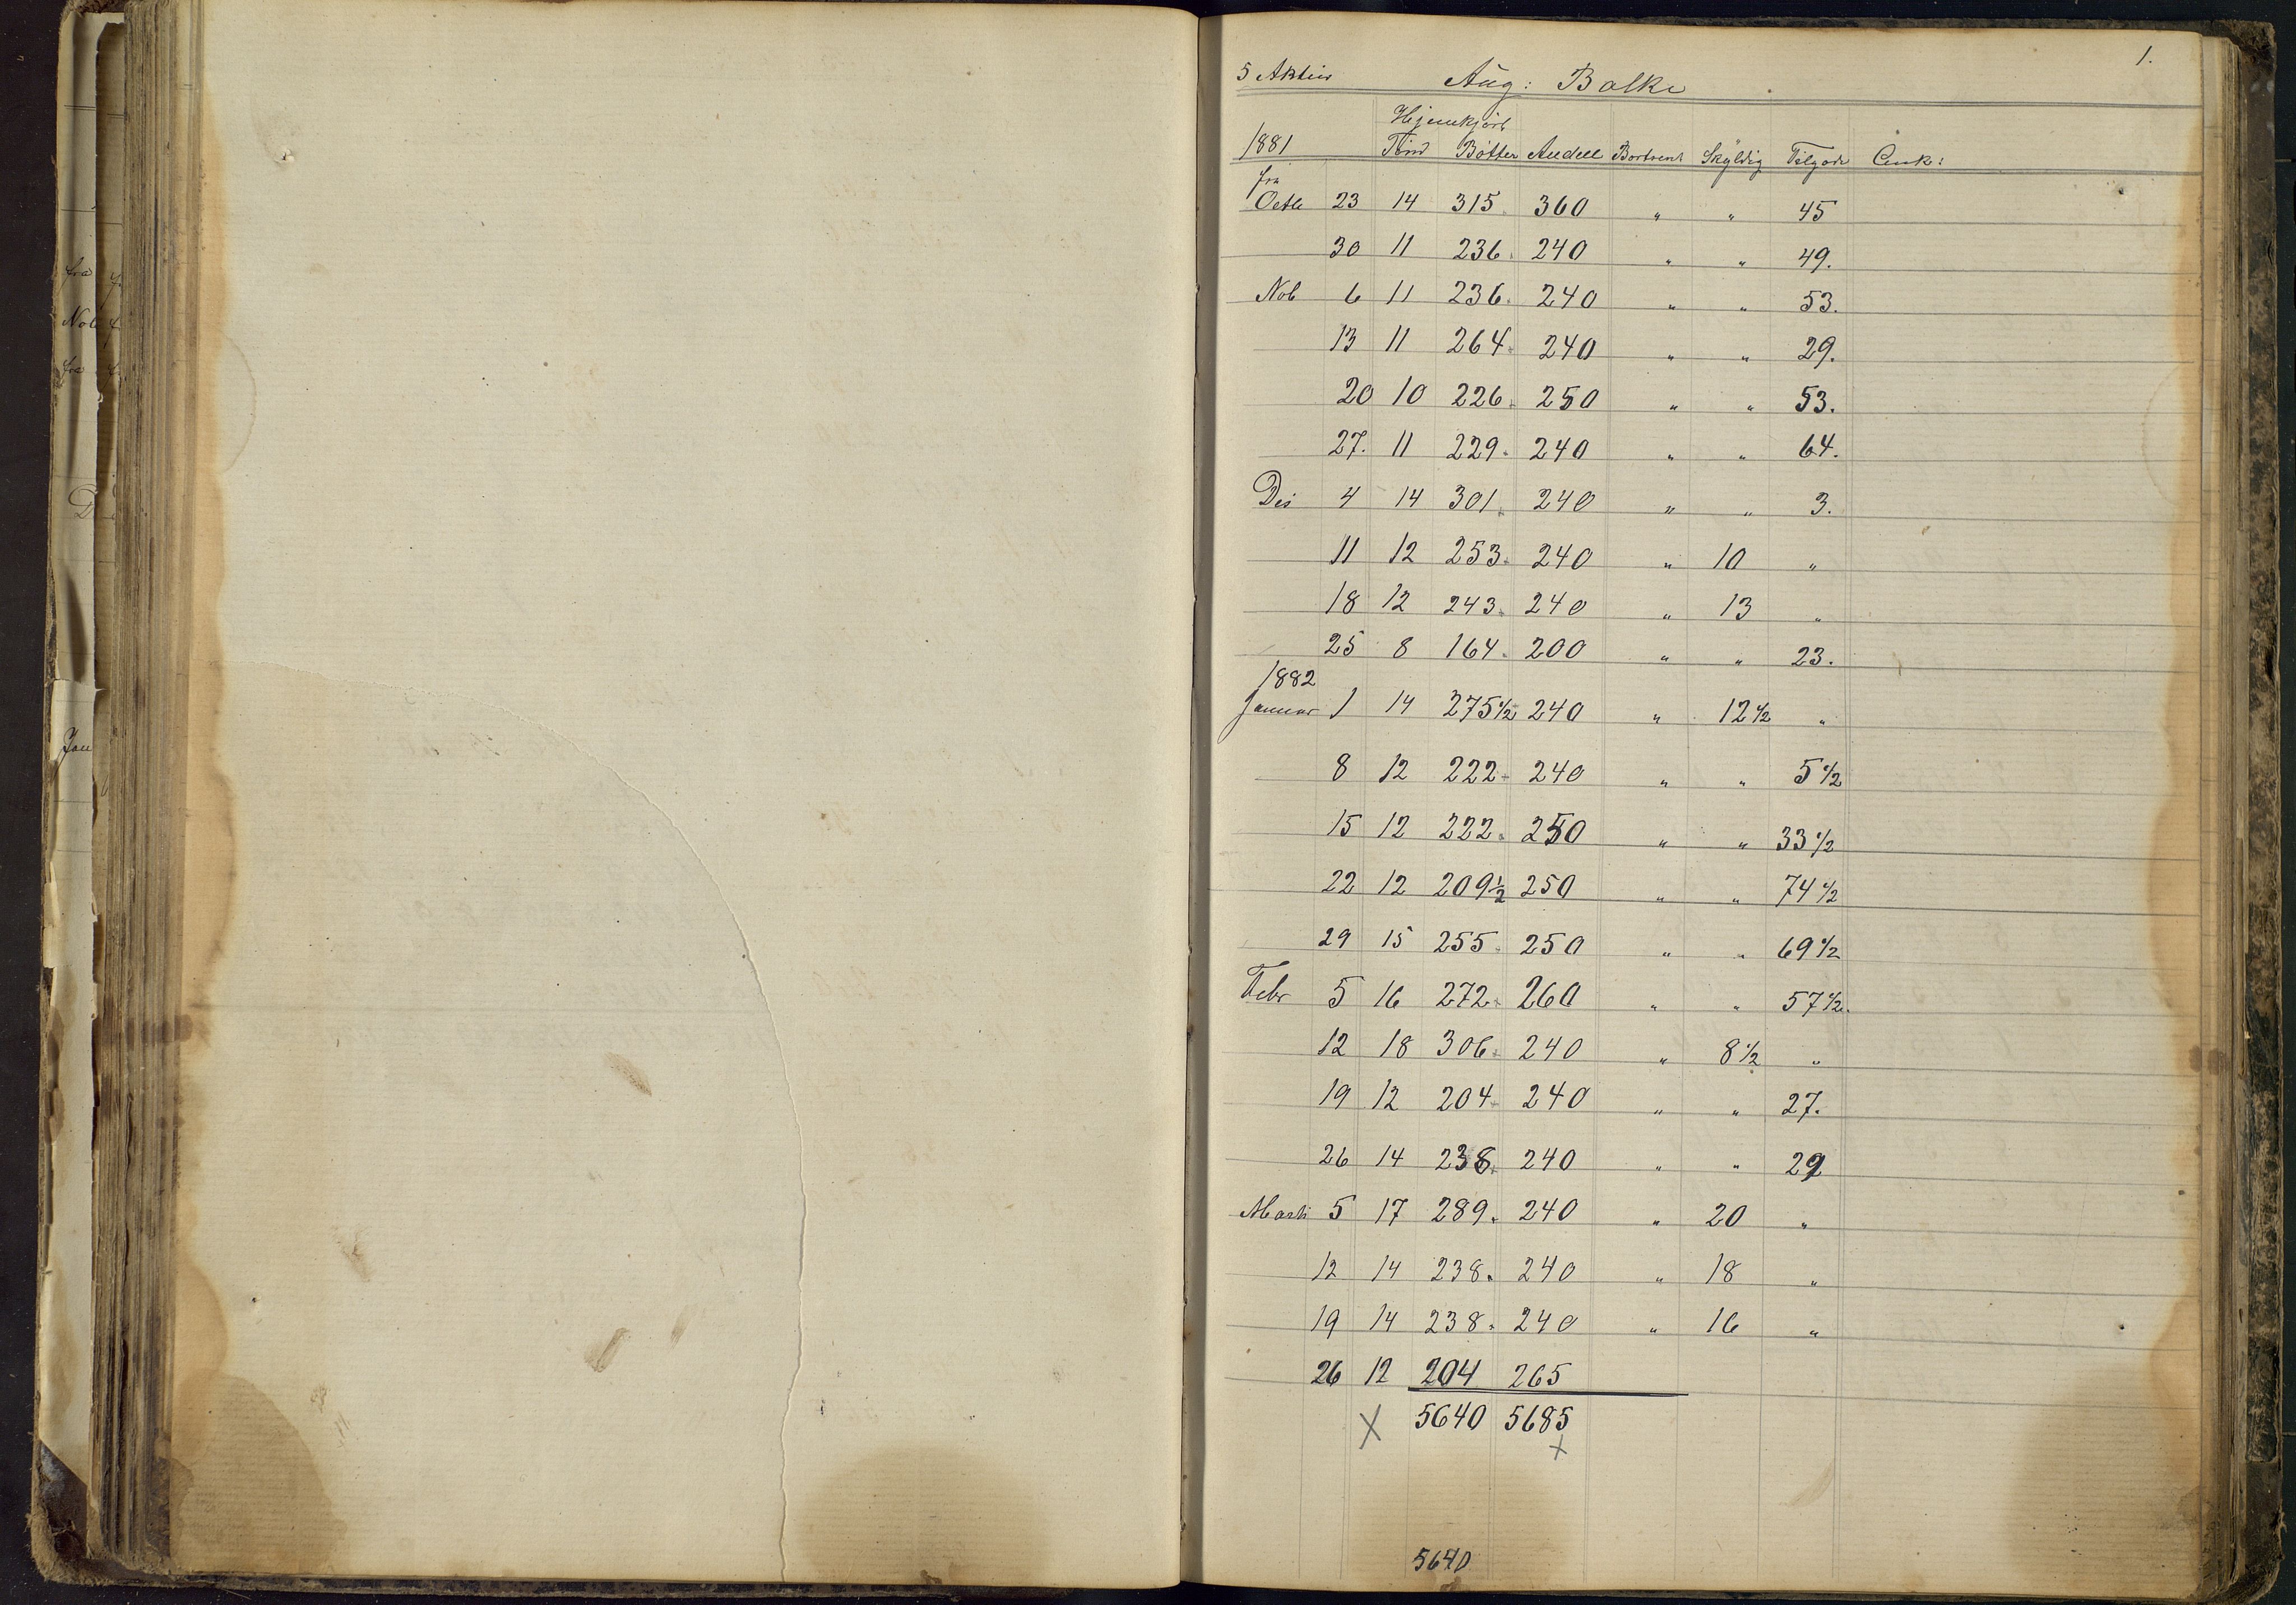 1.
5 Aktier Aug: Balke
Hjemkjört
1881 Tönd Bötter Andell Bortvent Skyldig Tilgode Ank:
fra
Octb 23 14 315. 360 " " 45
30 11 236. 240 " " 49.
Nob 6 11 236. 240 " " 53.
13 11 264. 240 " " 29.
20 10 226. 250 " " 53.
27. 11 229. 240 " " 64.
Des 4 14 301. 240 " " 3.
11 12 253. 240 " 10 "
18 12 243. 240 " 13 "
25 8 164. 200 " " 23.
1882
Januar 1 14 275 1/2 240 " 12 1/2 "
8 12 222. 240 " " 5 1/2
15 12 222. 250 " " 33 1/2
22 12 209 1/2 250 " " 74 1/2
29 15 255. 250 " " 69 1/2
Febr 5 16 272. 260 " " 57 1/2.
12 18 306. 240 " 8 1/2 "
19 12 204. 240 " " 27.
26 14 238. 240 " " 29
Marts 5 17 289. 240 " 20 "
12 14 238. 240 " 18 "
19 14 238. 240 " 16 "
26 12 204 265
X 5640 5685
X
5640
fra
Nob
fra
Jan